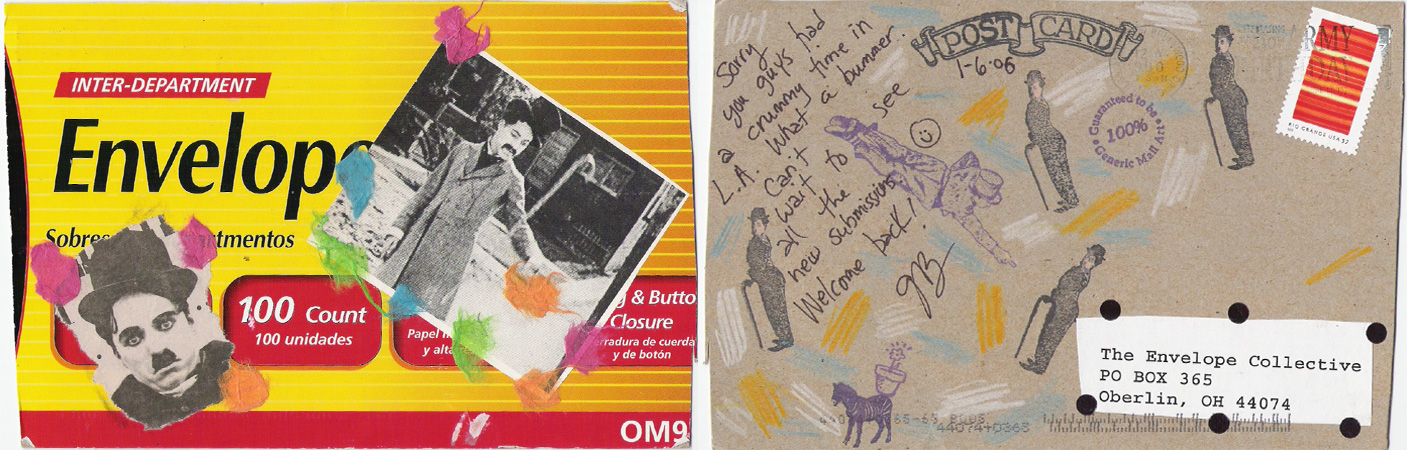 INTER-DEPARTMENT
Envelop
Sobres
rtmentos
100 Count
100 unidades
Papel
y alta
g & Butto
Closure
erradura de cuerda
y de botón
OM9
POST CARD
1-6-06
Sorry
you guys had
a crummy time in
L.A. What a bummer.
Can't see
all wait to
the
new submissions
Welcome back!
JB
Guaranteed to be
100%
Generic Mail Art
RMY
DAY
RIO GRANDE USA 37
The Envelope Collective
PO BOX 365
Oberlin, OH 44074
44074+0365